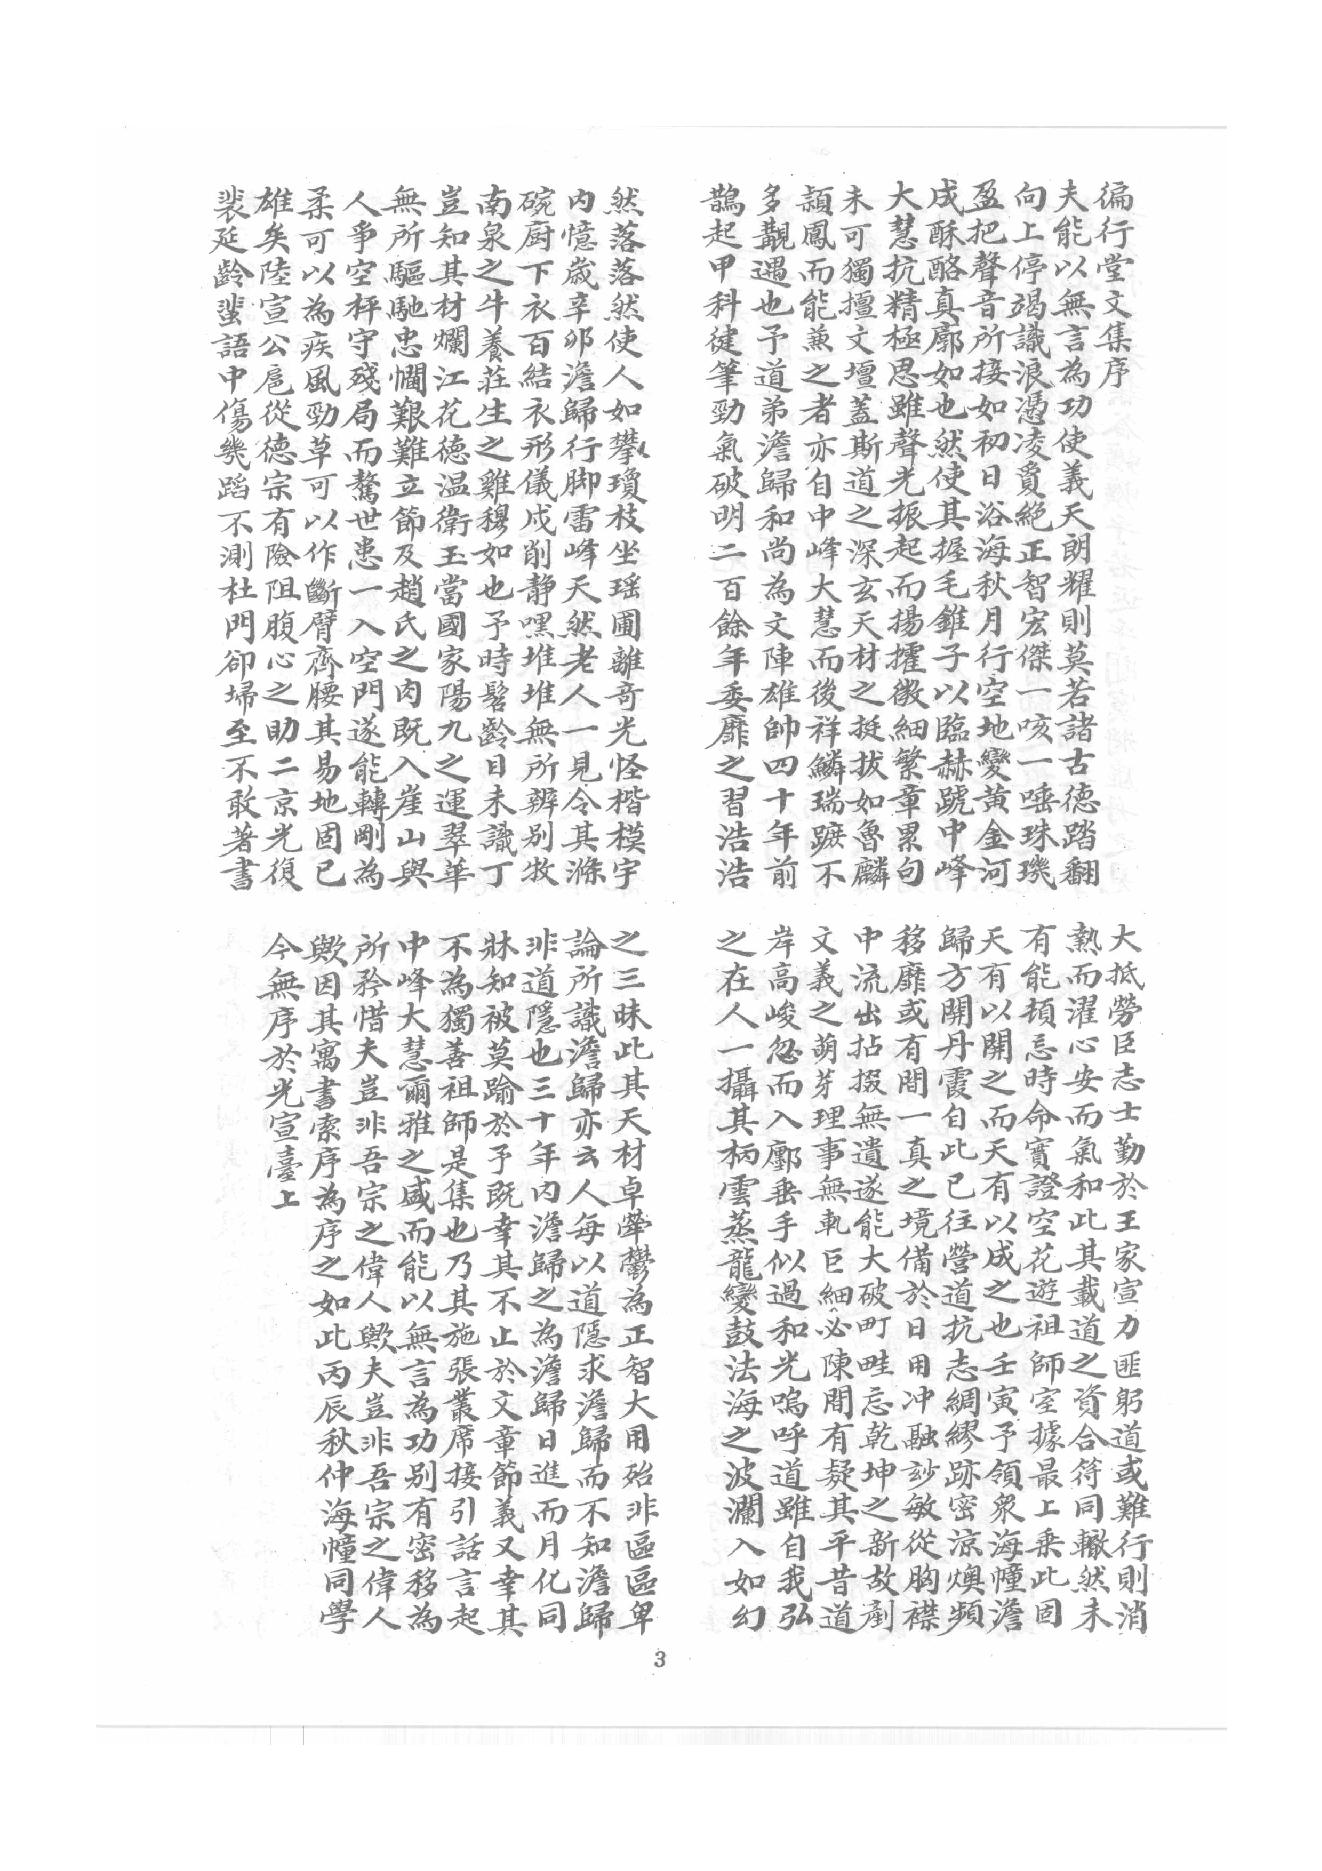 徧行堂文集序
夫能以無言為功使義天朗耀則莫若諸古德踏翻
向上停竭識浪憑凌敻絕正智宏傑一咳一唾珠璣
盈把聲音所接如初日浴海秋月行空地變黃金河
成酥酪真廓如也然使其握毛錐子以臨赫蹏中峰
大慧抗精極思雖聲光振起而揚攉微細繁章累句
未可獨擅文壇蓋斯道之深玄天材之挺拔如魯麟
頴鳳而能兼之者亦自中峰大慧而後祥鱗瑞蹠不
多覯遇也予道弟澹歸和尚為文陣雄帥四十年前
鵲起甲科健筆勁氣破明二百餘年委靡之習浩浩
然落落然使人如攀瓊枝坐瑶圃離奇光怪楷模宇
內憶歲辛卯澹歸行脚雷峰天然老人一見令其滌
碗厨下衣百結衣形儀戍削静嘿堆堆無所辨别牧
南泉之牛養莊生之雞穆如也予時髫齡目未識丁
豈知其材爛江花德温衛玉當國家陽九之運翠華
無所驅馳忠悃艱難立節及趙氏之肉既入崖山與
人爭空枰守殘局而驁世恚一入空門遂能轉剛為
柔可以為疾風勁草可以作斷臂齊腰其易地固已
雄矣陸宣公扈從德宗有險阻腹心之助二京光復
裴延齡蜚語中傷幾蹈不測杜門卻埽至不敢著書
大抵勞臣志士勤於王家宣力匪躬道或難行則消
熱而濯心安而氣和此其載道之資合符同轍然未
有能頓忘時命實證空花遊祖師室據最上乘此固
天有以開之而天有以成之也壬寅予領衆海幢澹
歸方開丹霞自此已往營道抗志綢繆跡密涼燠頻
移靡或有間一真之境備於日用冲融玅敏從胸襟
中流出拈掇無遺遂能大破町畦忘乾坤之新故剷
文義之萌芽理事無乹巨細必陳間有疑其平昔道
岸高峻忽而入鄽垂手似過和光嗚呼道雖自我弘
之在人一攝其柄雲蒸龍變鼓法海之波瀾入如幻
之三昧此其天材卓犖鬱為正智大用殆非區區卑
論所識澹歸亦云人每以道隱求澹歸而不知澹歸
非道隱也三十年內澹歸之為澹歸日進而月化同
牀知被莫踰於予既幸其不止於文章節義又幸其
不為獨善祖師是集也乃其施張叢席接引話言起
中峰大慧爾雅之盛而能以無言為功别有密移為
所矜惜夫豈非吾宗之偉人歟夫豈非吾宗之偉人
歟因其寓書索序為序之如此丙辰秋仲海幢同學
今無序於光宣臺上
3